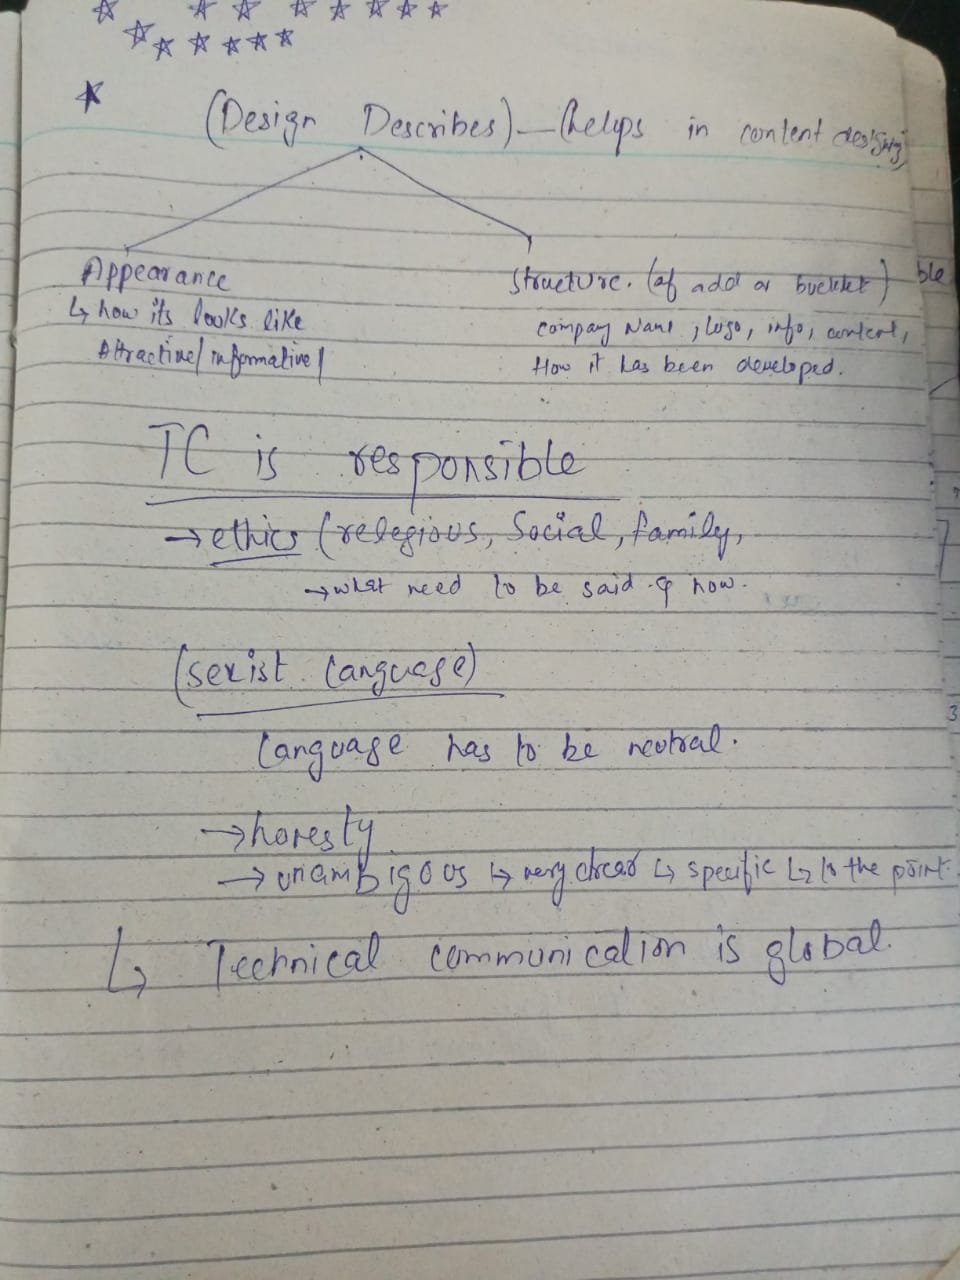 (Design Describes) — helps in content designing
Appearance
↳ how its looks like
Attractive/informative/
Structure. (of add or
ble
company Name, logo, info, content,
How it has been developed.
TC is responsible
→ ethics (relegious, Social, family,
→ what need to be said & how.
(sexist language)
language has to be neutral.
→ honesty
→ unambigous ↳ very clear ↳ specific ↳ to the point.
↳ Technical communication is global.
3